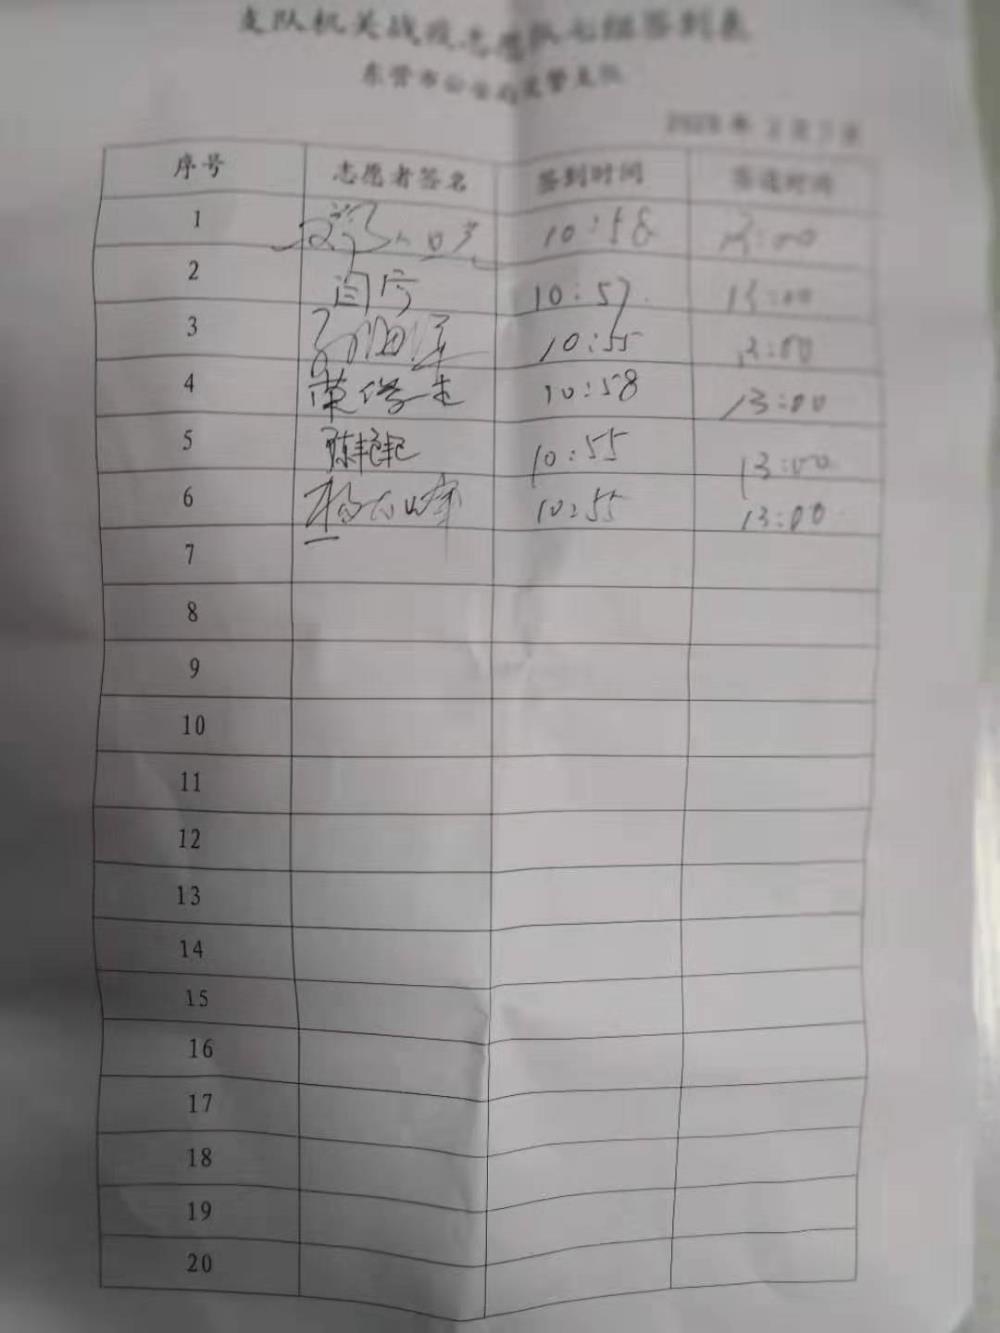 支队机关战疫志愿队七组签到表
东营市公安局交警支队
2020年2月7日
序号 志愿者签名 签到时间 签退时间
1 10:58 13:00
2 闫廷 10:57 13:00
3 10:55 13:00
4 荣修生 10:58 13:00
5 陈艳艳 10:55 13:00
6 10:55 13:00
7
8
9
10
11
12
13
14
15
16
17
18
19
20